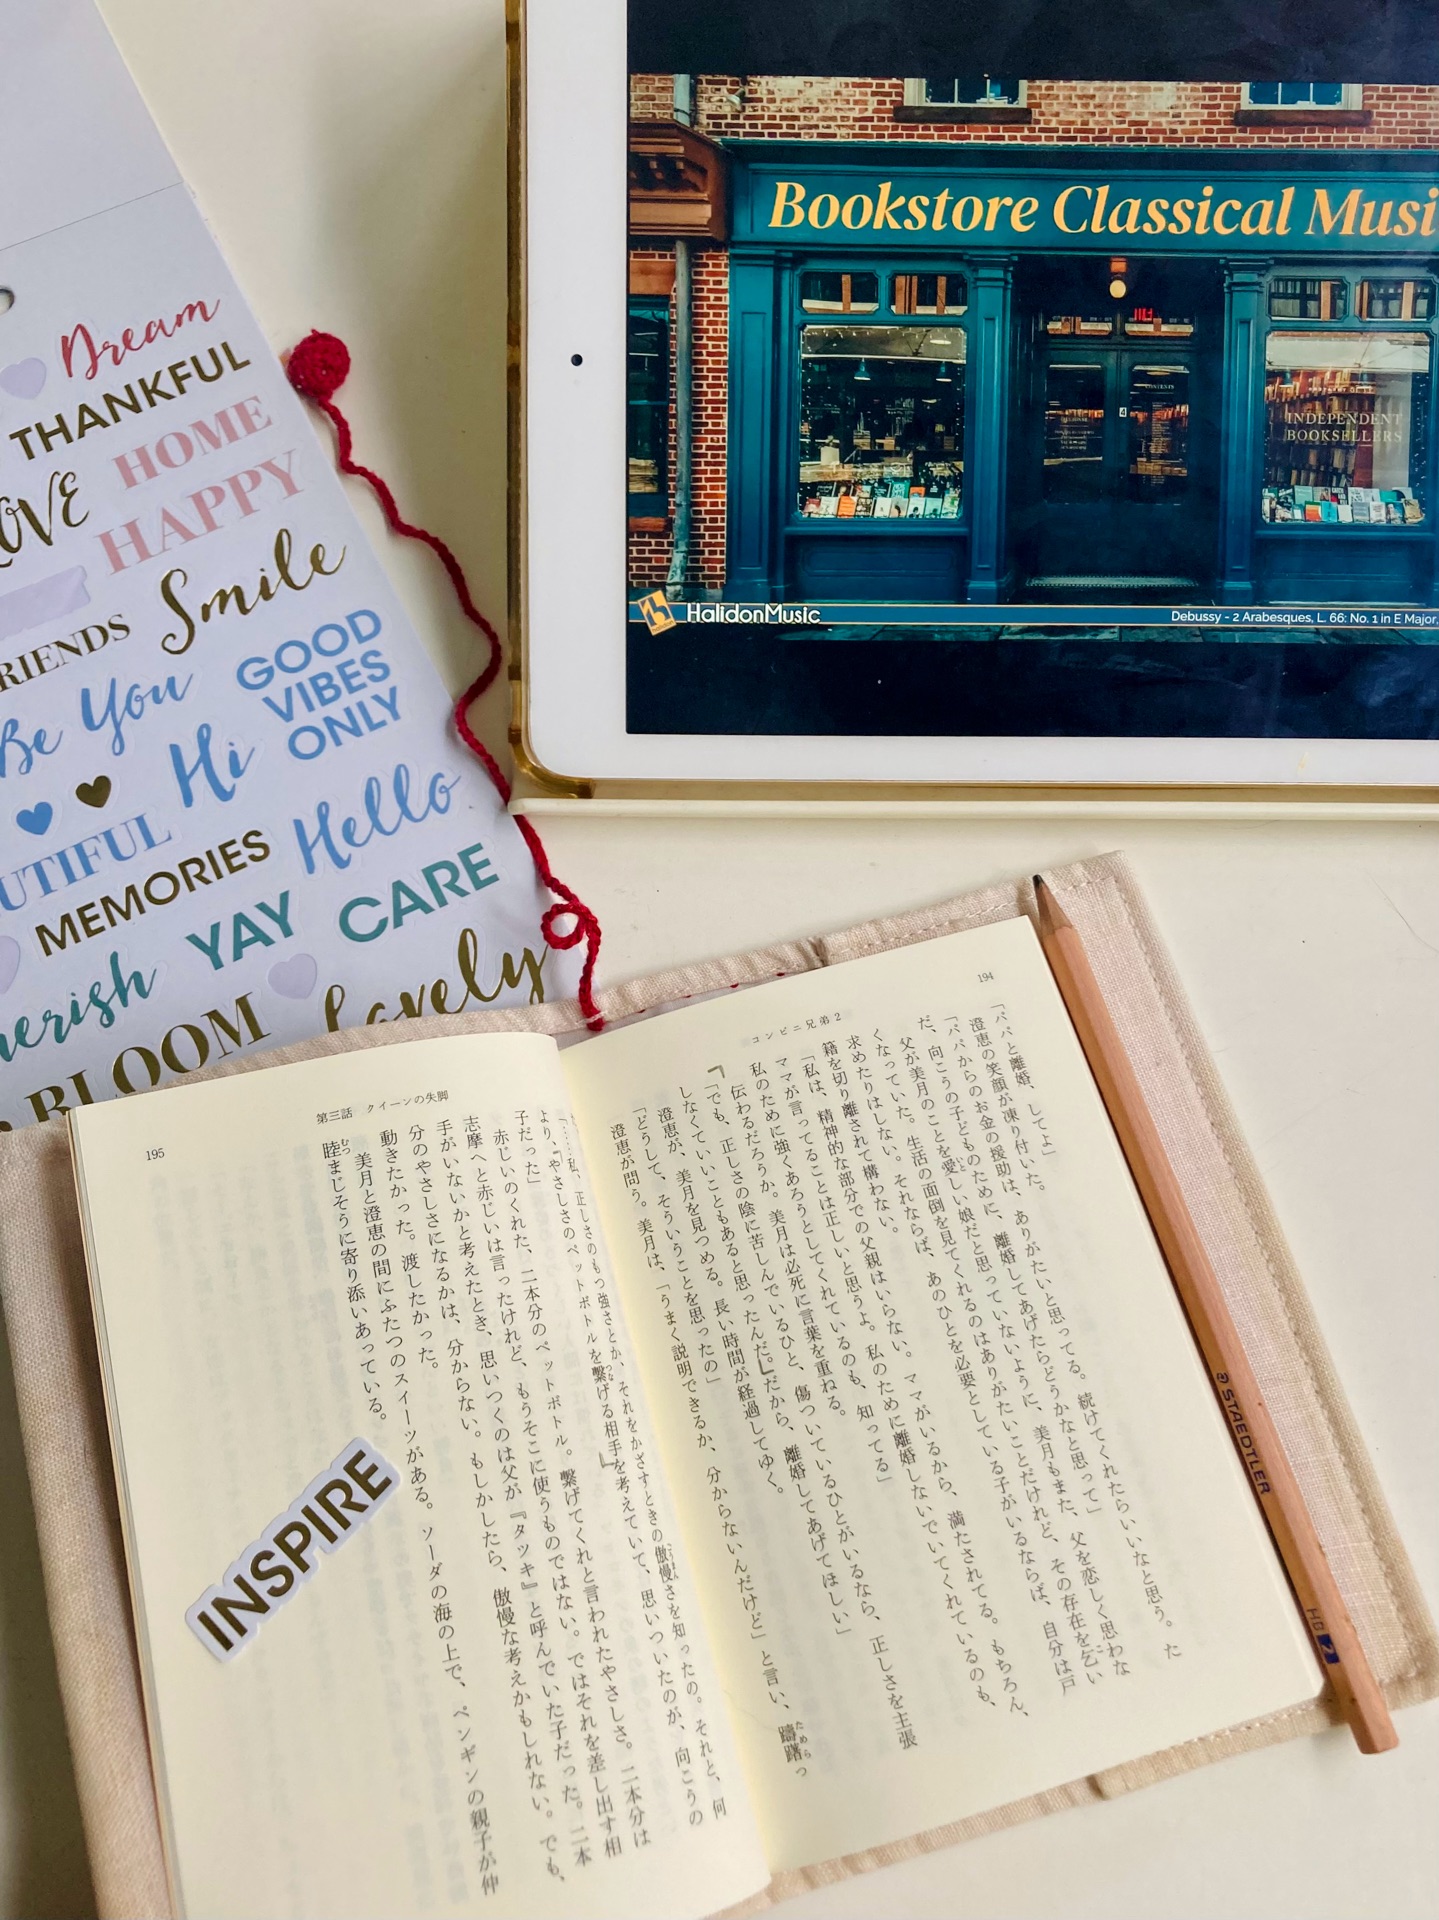 Dream
THANKFUL
HOME
HAPPY
Smile
Be You
GOOD
VIBES
ONLY
Hi
Hello
MEMORIES
YAY
CARE
BLOOM
Lovely
Bookstore Classical Musi
INDEPENDENT
BOOKSELLERS
4
HalidonMusic
Debussy - 2 Arabesques, L. 66: No. 1 in E Major,
194
コンビニ兄弟2
「パパと離婚、してよ」
澄恵の笑顔が凍り付いた。
「パパからのお金の援助は、ありがたいと思ってる。続けてくれたらいいなと思う。た
だ、向こうの子どものために、離婚してあげたらどうかなと思って」
父が美月のことを愛しい娘だと思っていないように、美月もまた、父を恋しく思わな
くなっていた。生活の面倒を見てくれるのはありがたいことだけれど、その存在を乞い
求めたりはしない。それならば、あのひとを必要としている子がいるならば、自分は戸
籍を切り離されて構わない。
「私は、精神的な部分での父親はいらない。ママがいるから、満たされてる。もちろん、
ママが言ってることは正しいと思うよ。私のために離婚しないでいてくれているのも、
私のために強くあろうとしてくれているのも、知ってる」
伝わるだろうか。美月は必死に言葉を重ねる。
「でも、正しさの陰に苦しんでいるひと、傷ついているひとがいるなら、正しさを主張
しなくていいこともあると思ったんだ。だから、離婚してあげてほしい」
澄恵が、美月を見つめる。長い時間が経過してゆく。
「どうして、そういうことを思ったの」
澄恵が問う。美月は、「うまく説明できるか、分からないんだけど」と言い、躊躇っ
第三話 クイーンの失脚
195
「……私、正しさのもつ強さとか、それをかざすときの傲慢さを知ったの。それと、何
より、やさしさのペットボトルを繋げる相手を考えていて、思いついたのが、向こうの
子だった」
赤じいのくれた、二本分のペットボトル。繋げてくれと言われたやさしさ。二本分は
志摩へと赤じいは言ったけれど、もうそこに使うものではない。ではそれを差し出す相
手がいないかと考えたとき、思いつくのは父が『タツキ』と呼んでいた子だった。二本
分のやさしさになるかは、分からない。もしかしたら、傲慢な考えかもしれない。でも、
動きたかった。渡したかった。
美月と澄恵の間にふたつのスイーツがある。ソーダの海の上で、ペンギンの親子が仲
睦まじそうに寄り添いあっている。
INSPIRE
STAEDTLER
HB 2